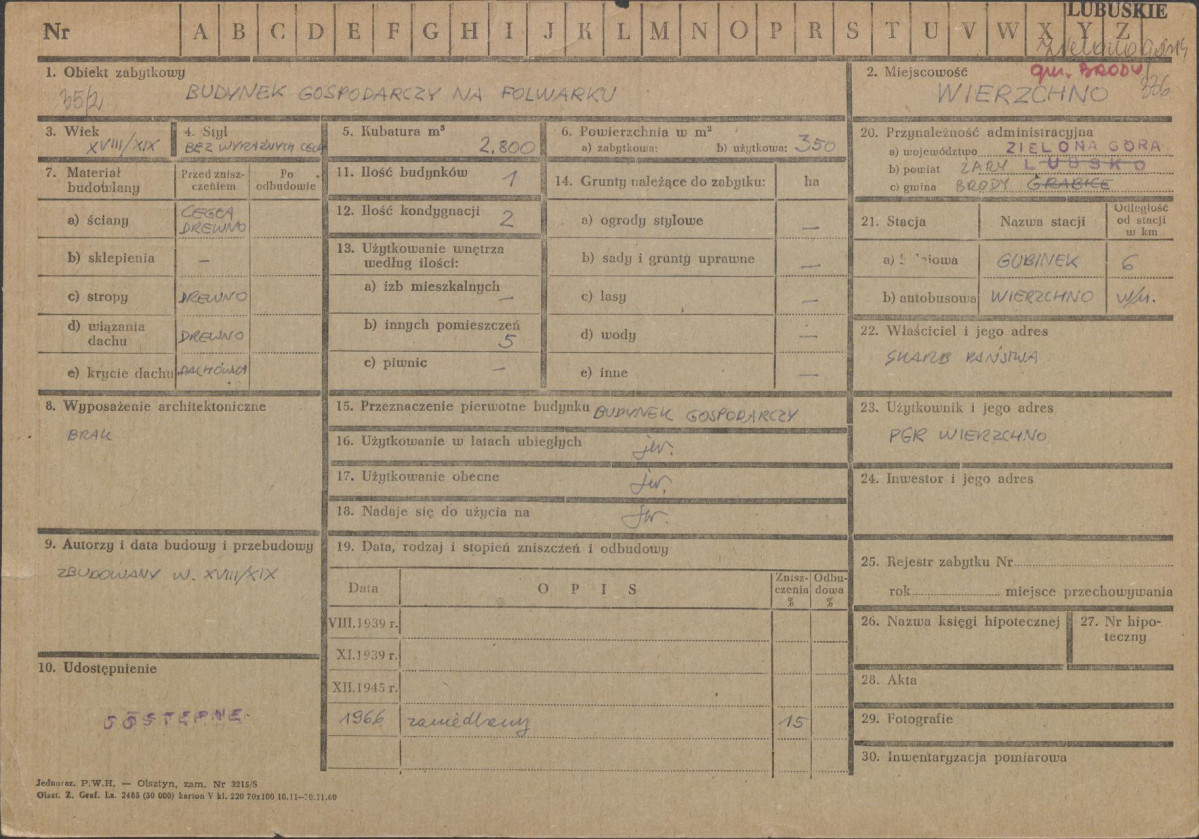 LUBUSKIE
Nr A B C D E F G H I J K L M N O P R S T U V W X Y Z
Zielonogórs
1. Obiekt zabytkowy
35/2 BUDYNEK GOSPODARCZY NA FOLWARKU
2. Miejscowość gm. BRODY
WIERZCHNO 336
3. Wiek
XVIII/XIX
4. Styl
BEZ WYRAŹNYCH CECH
5. Kubatura m³
2.800
6. Powierzchnia w m²
a) zabytkowa: b) użytkowa: 350
20. Przynależność administracyjna
a) województwo ZIELONA GÓRA
b) powiat ŻARY LUBSKO
c) gmina BRODY GRABICE
7. Materiał budowlany
Przed znisz-
czeniem
Po
odbudowie
a) ściany CEGŁA
DREWNO
b) sklepienia —
c) stropy DREWNO
d) wiązania
dachu DREWNO
e) krycie dachu DACHÓWKA
11. Ilość budynków 1
12. Ilość kondygnacji 2
13. Użytkowanie wnętrza
według ilości:
a) izb mieszkalnych —
b) innych pomieszczeń
5
c) piwnic —
14. Grunty należące do zabytku: ha
a) ogrody stylowe —
b) sady i grunty uprawne —
c) lasy —
d) wody —
e) inne —
21. Stacja Nazwa stacji Odległość
od stacji
w km
a) GUBINEK 6
b) autobusowa WIERZCHNO w/m.
22. Właściciel i jego adres
SKARB PAŃSTWA
8. Wyposażenie architektoniczne
BRAK
15. Przeznaczenie pierwotne budynku BUDYNEK GOSPODARCZY
16. Użytkowanie w latach ubiegłych jw.
17. Użytkowanie obecne jw.
18. Nadaje się do użycia na jw.
23. Użytkownik i jego adres
PGR WIERZCHNO
24. Inwestor i jego adres
9. Autorzy i data budowy i przebudowy
ZBUDOWANY W. XVIII/XIX
19. Data, rodzaj i stopień zniszczeń i odbudowy
Data OPIS Znisz-
czenia
% Odbu-
dowa
%
VIII.1939 r.
XI.1939 r.
XII.1945 r.
1966 zaniedbany 15
25. Rejestr zabytku Nr
rok miejsce przechowywania
26. Nazwa księgi hipotecznej
27. Nr hipo-
teczny
10. Udostępnienie
28. Akta
29. Fotografie
30. Inwentaryzacja pomiarowa
Jednoraz. P.W.H. — Olsztyn, zam. Nr 3215/S
Olszt. Z. Graf. Lz. 2485 (50 000) karton V kl. 220 70x100